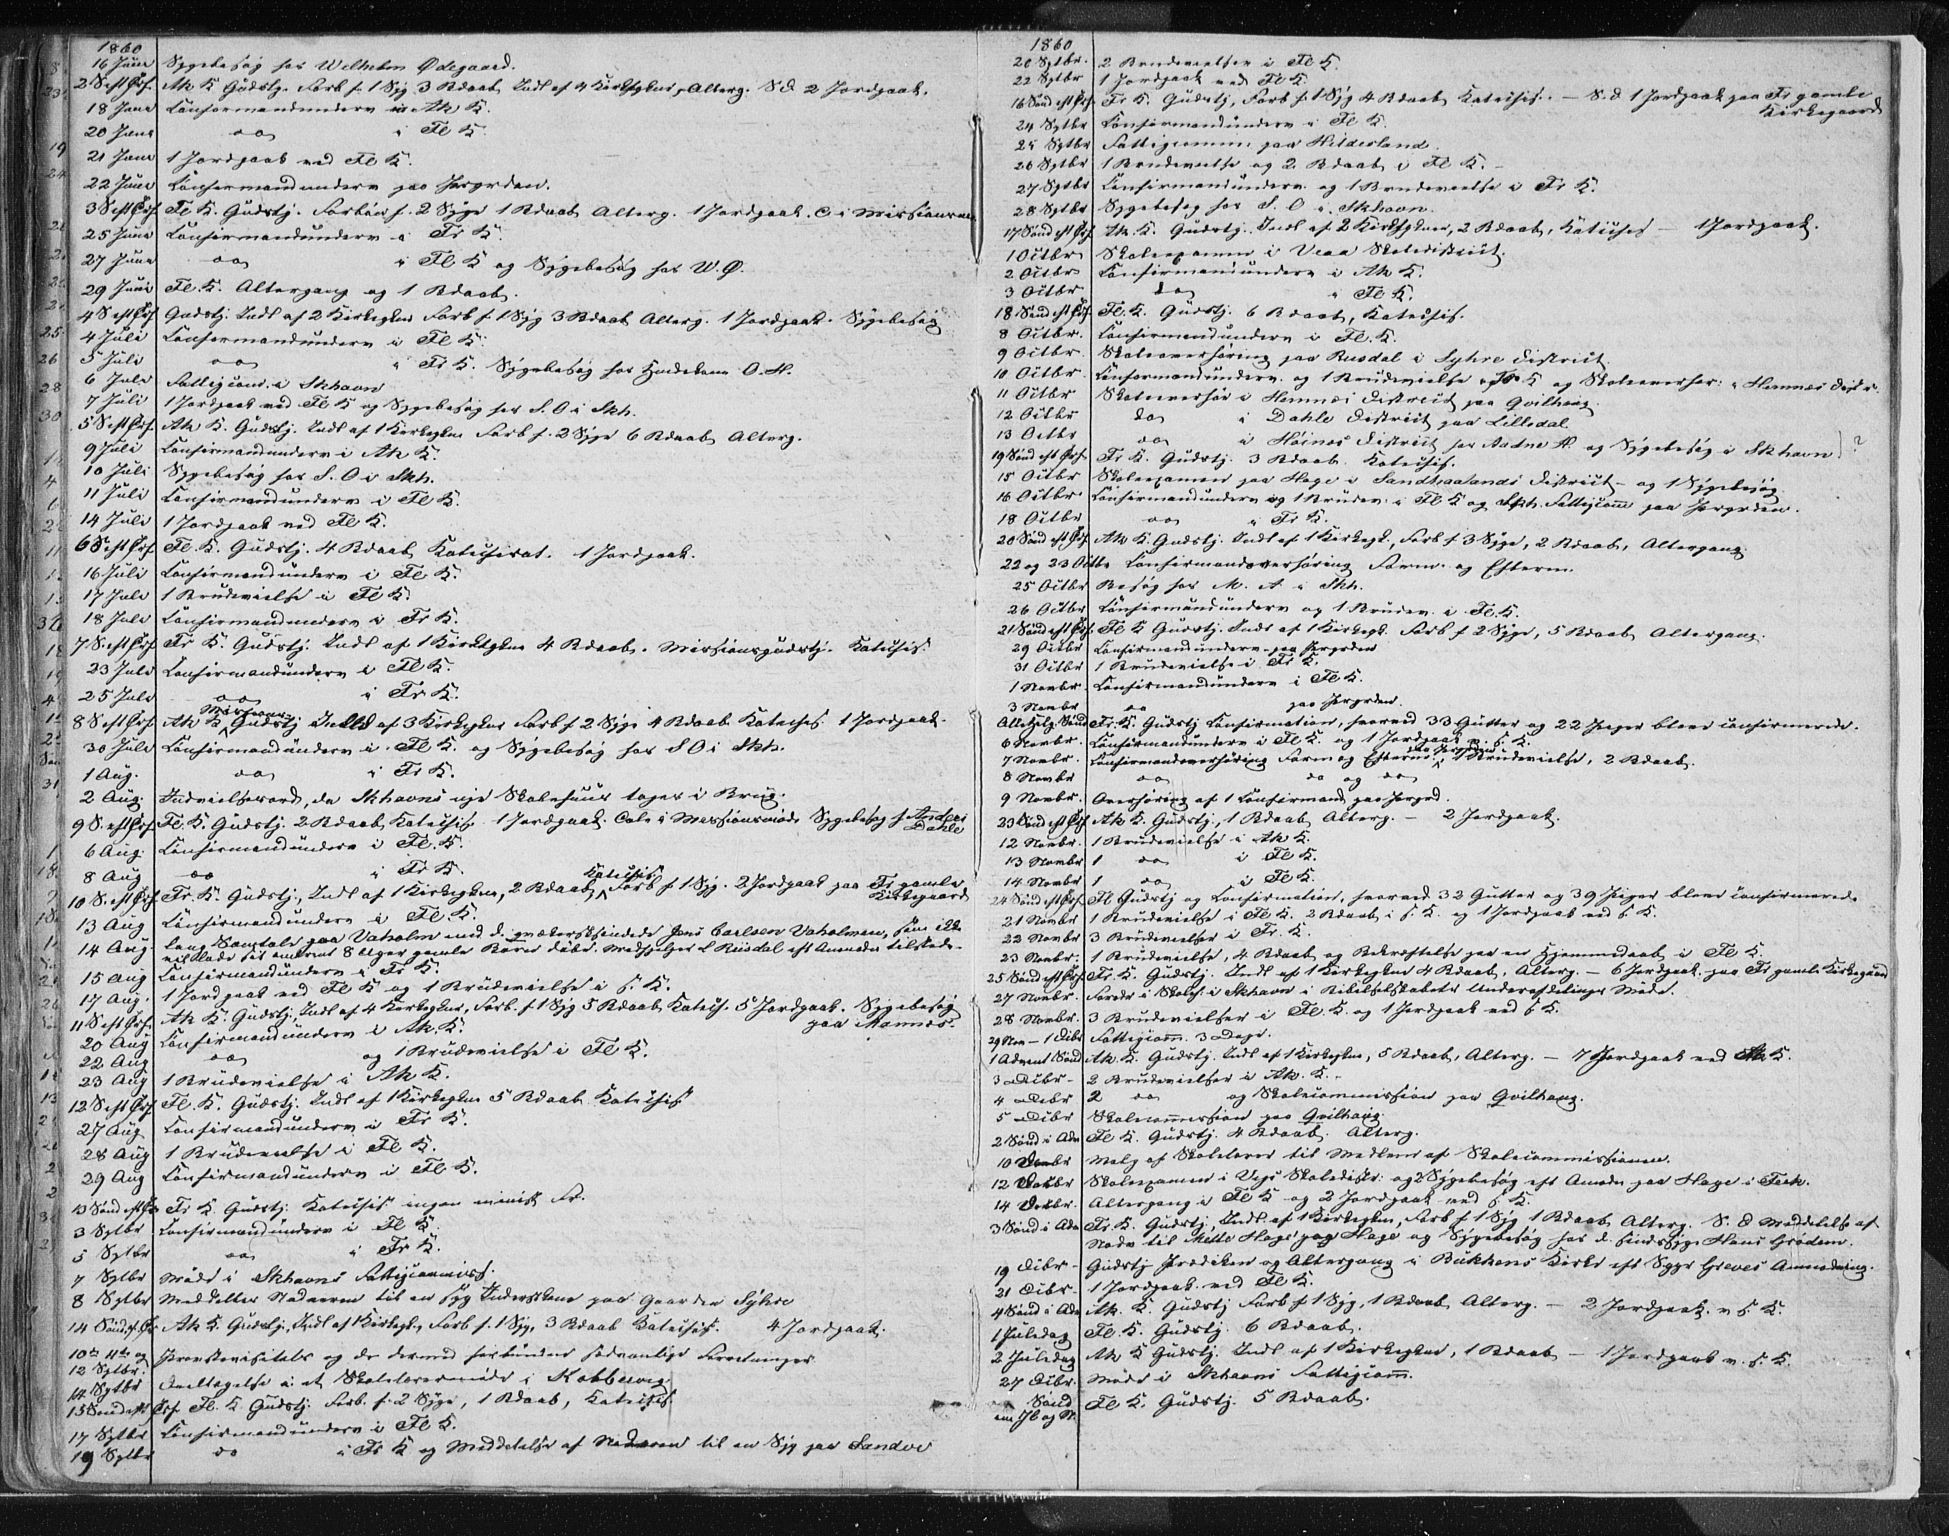 1860
16 Juni Sygebesøg hos Wilhelm Ødegaard.
2 S. eft Trf. Ak K. Gudstj. Forb f. 1 Syg 3 Bdaab, Indl af 4 Kirkegkner, Alterg. S. D. 2 Jordpaak.
18 Juni Confirmandunderv i Ak K.
20 Juni do i Fl K.
21 Juni 1 Jordpaak ved Fl K.
22 Juni Confirmandunderv paa Prgrden.
3 S eft Trf. Fl K. Gudstj. Forbøn f. 2 Syge 1 Bdaab Alterg. 1 Jordpaak.
25 Juni Confirmandunderv i Fr K.
27 Juni do i Fl K og Sygebesøg hos W. Ø.
29 Juni Fl. K. Altergang og 1 Bdaab.
4 S eft Trf. Gudstj. Indl af 2 Kirkegkner Forb f. 1 Syg 3 Bdaab Alterg. 1 Jordpaak. Sygebesøg
4 Juli Confirmandunderv i Fl K.
5 Juli do i Fr K. Sygebesøg hos O. H.
6 Juli Fattigcom. i Skhavn
7 Juli 1 Jordpaak ved Fl K og Sygebesøg hos S. O i Skh.
5 S eft Trf. Ak K. Gudstj. Indl af 1 Kirkegkne Forb f. 2 Syge 6 Bdaab Alterg.
9 Juli Confirmandunderv i Ak K.
10 Juli Sygebesøg hos S. O i Skh.
11 Juli Confirmandunderv i Fl K.
14 Juli 1 Jordpaak ved Fl K.
6 S. eft Trf. Fl. K. Gudstj. 4 Bdaab Katechisat. 1 Jordpaak.
16 Juli Confirmandunderv i Fl K.
17 Juli 1 Brudevielse i Fl K.
18 Juli Confirmandunderv i Fr K.
7 S. eft Trf. Fr K. Gudstj. Indl af 1 Kirkegkne 4 Bdaab. Missionsgudstj. Katechis.
23 Juli Confirmandunderv i Fl K.
25 Juli do i Fr K.
8 S eft Trf. Ak K Missions Gudstj Indl af 3 Kirkegkner Forb f 2 Syge 4 Bdaab Kateches 1 Jordpaak.
30 Juli Confirmandunderv i Fl K. og Sygebesøg hos S O i Skh.
1 Aug. do i Fr K.
2 Aug. Indvielsesord, da Skhavns nye Skolehuus toges i Brug.
9 S. eft Trf. Fl. K. Gudstj. 2 Bdaab Katechis. 1 Jordpaak. Tale i Missionsmøde Sygebesøg f Andrei Dahle
6 Aug. Confirmandunderv i Fl. K.
8 Aug do i Fr K.
10 S. eft Trf. Fr. K. Gudstj., Indl af 1 Kirkegkne, 2 Bdaab, Katechis Forb f 1 Syg. 2 Jordpaak paa Fr gamle Kirkegaard
13 Aug Confirmandunderv i Fl K.
14 Aug lang Samtale paa Vaholm med d. qvækersksindede Jens Carlsen Vaholmen, som ikke
vil lade sit omtrent 8 Uger gamle Barn døbe. Medhjelper L Risdal eft Anmodn tilstede.
15 Aug Confirmandunderv i Fr K.
17 Aug. 1 Jordpaak ved Fl K og 1 Brudevielse i s. K.
11 S eft Trf. Ak K. Gudstj, Indl af 4 Kirkegkner, Forb. f. 1 Syg 5 Bdaab Katech. 5 Jordpaak. Sygebesøg paa Mannes.
20 Aug Confirmandunderv i Ak K.
22 Aug do og 1 Brudevielse i Fl K.
23 Aug 1 Brudevielse i Ak K.
12 S eft Trf. Fl. K. Gudstj. Indl af 1 Kirkegkne 5 Bdaab Katechis
27 Aug Confirmandunderv i Fr K.
28 Aug 1 Brudevielse i Fl K.
29 Aug Confirmandunderv i Fl K.
13 Sønd eft Trf Fr K. Gudstj. Katechis. ingen minist Fr.
3 Sptbr Confirmandunderv i Fl K.
5 Sptbr do i Fr K.
7 Sptbr Møde i Skhavns Fattigcommiss.
8 Sptbr Meddeltes Nadveren til en syg paa Gaarden Syhre
14 Sønd. eft Trf Ak K. Gudstj., Indl af 1 Kirkegkn, Forb f. 1 Syg, 3 Bdaab Katechis. 4 Jordpaak.
10de 11te og
12 Sptbr. Provstevisitats og de dermed forbundne sædvanlige Forretninger
14 Sptbr Deeltagelse i et Skolelærermøde i Kobbervig.
15 Sønd eft Trf. Fl. K. Gudstj. Forb. f. 2 Syge, 1 Bdaab, Katechis.
17 Sptbr Confirmandunderv i Fl K.
19 Sptbr do i Fr K og Meddelelse af Nadveren til en Syg paa Sandve
1860
20 Sptbr. 2 Brudevielser i Fl K.
22 Sptbr 1 Jordpaak ved Fl K.
16 Sønd eft Trf. Fr K. Gudstj, Forb f. 1 Syg 4 Bdaab Katechis. — S. D 1 Jordpaak paa Fr gamle Kirkegaard
24 Sptbr Confirmandunderv i Fl K.
25 Sptbr Fattigcomm paa Hildesland.
26 Sptbr 1 Brudevielse og 2 Bdaab i Fl K.
27 Sptbr Confirmandunderv. og 1 Brudevielse i Fr K.
28 Sptbr Sygebesøg hos S. O i Skhavn.
17 Sønd eft Trf. Ak. K. Gudstj. Indl af 2 Kirkegkner, 2 Bdaab, Kateches — 1 Jordpaak.
1 Octbr Skoleexamen i Veaa Skoledistrict.
2 Octbr Confirmandunderv i Ak K.
3 Octbr do i Fl K.
18 Sønd eft Trf. Fl. K. Gudstj. 6 Bdaab, Katechis.
8 Octbr. Confirmandunderv i Fl. K.
9 Octbr. Skoleoverhøring paa Rusdal i Syhre District
10 Octbr. Confirmandunderv. og 1 Brudevielse i Fr K og Skoleoverhør. i Hemnæs Distr.
11 Octbr Skoleoverhør i Hemnæs District paa Qvilhaug.
12 Octbr do i Dahle District paa Lilledal
13 Octbr do i Høines District hos Aadne H. og Sygebesøg i Skhavn ?
19 Sønd eft Trf. Fr K. Gudstj. 3 Bdaab. Katechis.
15 Octbr Skoleexamen paa Hage i Sandhaalands District — og 1 Sygebesøg
16 Octbr Confirmandunderv og 1 Brudev. i Fl K og Skh. Fattigcom paa Prgrden.
18 Octbr do i Fr K.
20 Sønd eft Trf. Ak K. Gudstj. Indl af 1 Kirkegk., Forb f 3 Syge, 2 Bdaab, Altergang
22 og 23 Octbr Confirmandoverhøring Form. og Efterm.
25 Octbr Besøg hos M. A i Skh.
26 Octbr Confirmandunderv og 1 Brudev. i Fl. K.
21 Sønd eft Trf. Fl K Gudstj. Indl af 1 Kirkegk. Forb f 2 Syge, 5 Bdaab Altergang.
29 Octbr Confirmandunderv. paa Prgrden
31 Octbr 1 Brudevielse i Fr K.
1 Novbr. Confirmandunderv i Fl K.
3 Novbr do paa Prgrden
Allehelg. Sønd Fr. K. Gudstj Confirmation, hvorved 33 Gutter og 22 Piger bleve confirmerede.
6 Novbr. Confirmandunderv i Fl K. og 1 Jordpaak v. s. K.
7 Novbr. Confirmandoverhøring Form og Efterm. paa Prgrden, 1 Brudevielse, 2 Bdaab.
8 Novbr do do og do
9 Novbr. Overhøring af 1 Confirmand paa Prgrd.
23 Sønd eft Trf Ak K. Gudstj., 1 Bdaab Alterg. — 2 Jordpaak.
12 Novbr. 1 Brudevielse i Ak K.
13 Novbr 1 do i Fl K.
14 Novbr 1 do i Fl K.
24 Sønd eft Trf. Fl Gudstj og Confirmation, hvorved 32 Gutter og 39 Piger bleve confirmerede.
21 Novbr 1 Brudevielse i Fl K. 2 Bdaab i s. K. og 1 Jordpaak ved s K.
22 Novbr 3 Brudevielser i Fr. K.
23 Novbr. 1 Brudevielse, 4 Bdaab og Bekræftelse paa en Hjemmedaab i Fl K.
25 Sønd eft Trf. Fr. K. Gudstj. Indl af 1 Kirkegkne 4 Bdaab, Alterg. — 6 Jordpaak. paa Fr gamle Kirkegaard
27 Novbr. Foredr i Skoleh. i Skhavn i Bibelselskabets Underafdelings Møde.
28 Novbr. 3 Brudevielser i Fl K. og 1 Jordpaak ved s K.
29 Nov — 1 Dcbr Fattigcom. 3 Dage.
1 Advent Sønd Ak. K. Gudstj. Indl af 1 Kirkegkne, 5 Bdaab, Alterg. — 7 Jordpaak ved Ak K.
3 Dcbr — 2 Brudevielser i Ak. K.
4 Dcbr 2 do og Skolecommission paa Qvilhaug.
5 Dcbr Skolecommission paa Qvilhaug
2 Sønd i Adv Fl K. Gudstj. 4 Bdaab. Alterg.
10 Dcbr Valg af Skolelærer til Medlem af Skolecommissionen.
12 Dcbr Skoleexamen i Vegs Skoledistr. og 2 Sygebesøg eft Anmodn paa Hage i Fæøe.
14 Dcbr. Altergang i Fl K og 2 Jordpaak ved s K.
3 Sønd i Adv Fr. K. Gudstj., Indl af 1 Kirkegkne, Forb f 1 Syg, 1 Bdaab Alterg. S. D Meddelelse af
Nadv til Mette Hage paa Hage og Sygebesøg hos d. sindssyge Hans Grødem.
19 Dcbr — Gudstj Prædiken og Altergang i Bukkens Kirke eft Sgpr Greves Anmodning.
21 Dcbr. 1 Jordpaak ved Fl K.
4 Sønd i Adv Ak. K. Gudstj Forb f 1 Syg, 1 Bdaab Alterg. — 2 Jordpaak v s K.
1 Juledag Fl. K. Gudstj. 6 Bdaab.
2 Juledag Ak K Gudstj. Indl af 1 Kirkegkne, 1 Bdaab — 1 Jordpaak v. s. K.
27 Dcbr. Møde i Skhavns Fattigcom.
Sønd Fl K. Gudstj. 5 Bdaab.
em Jl og N.